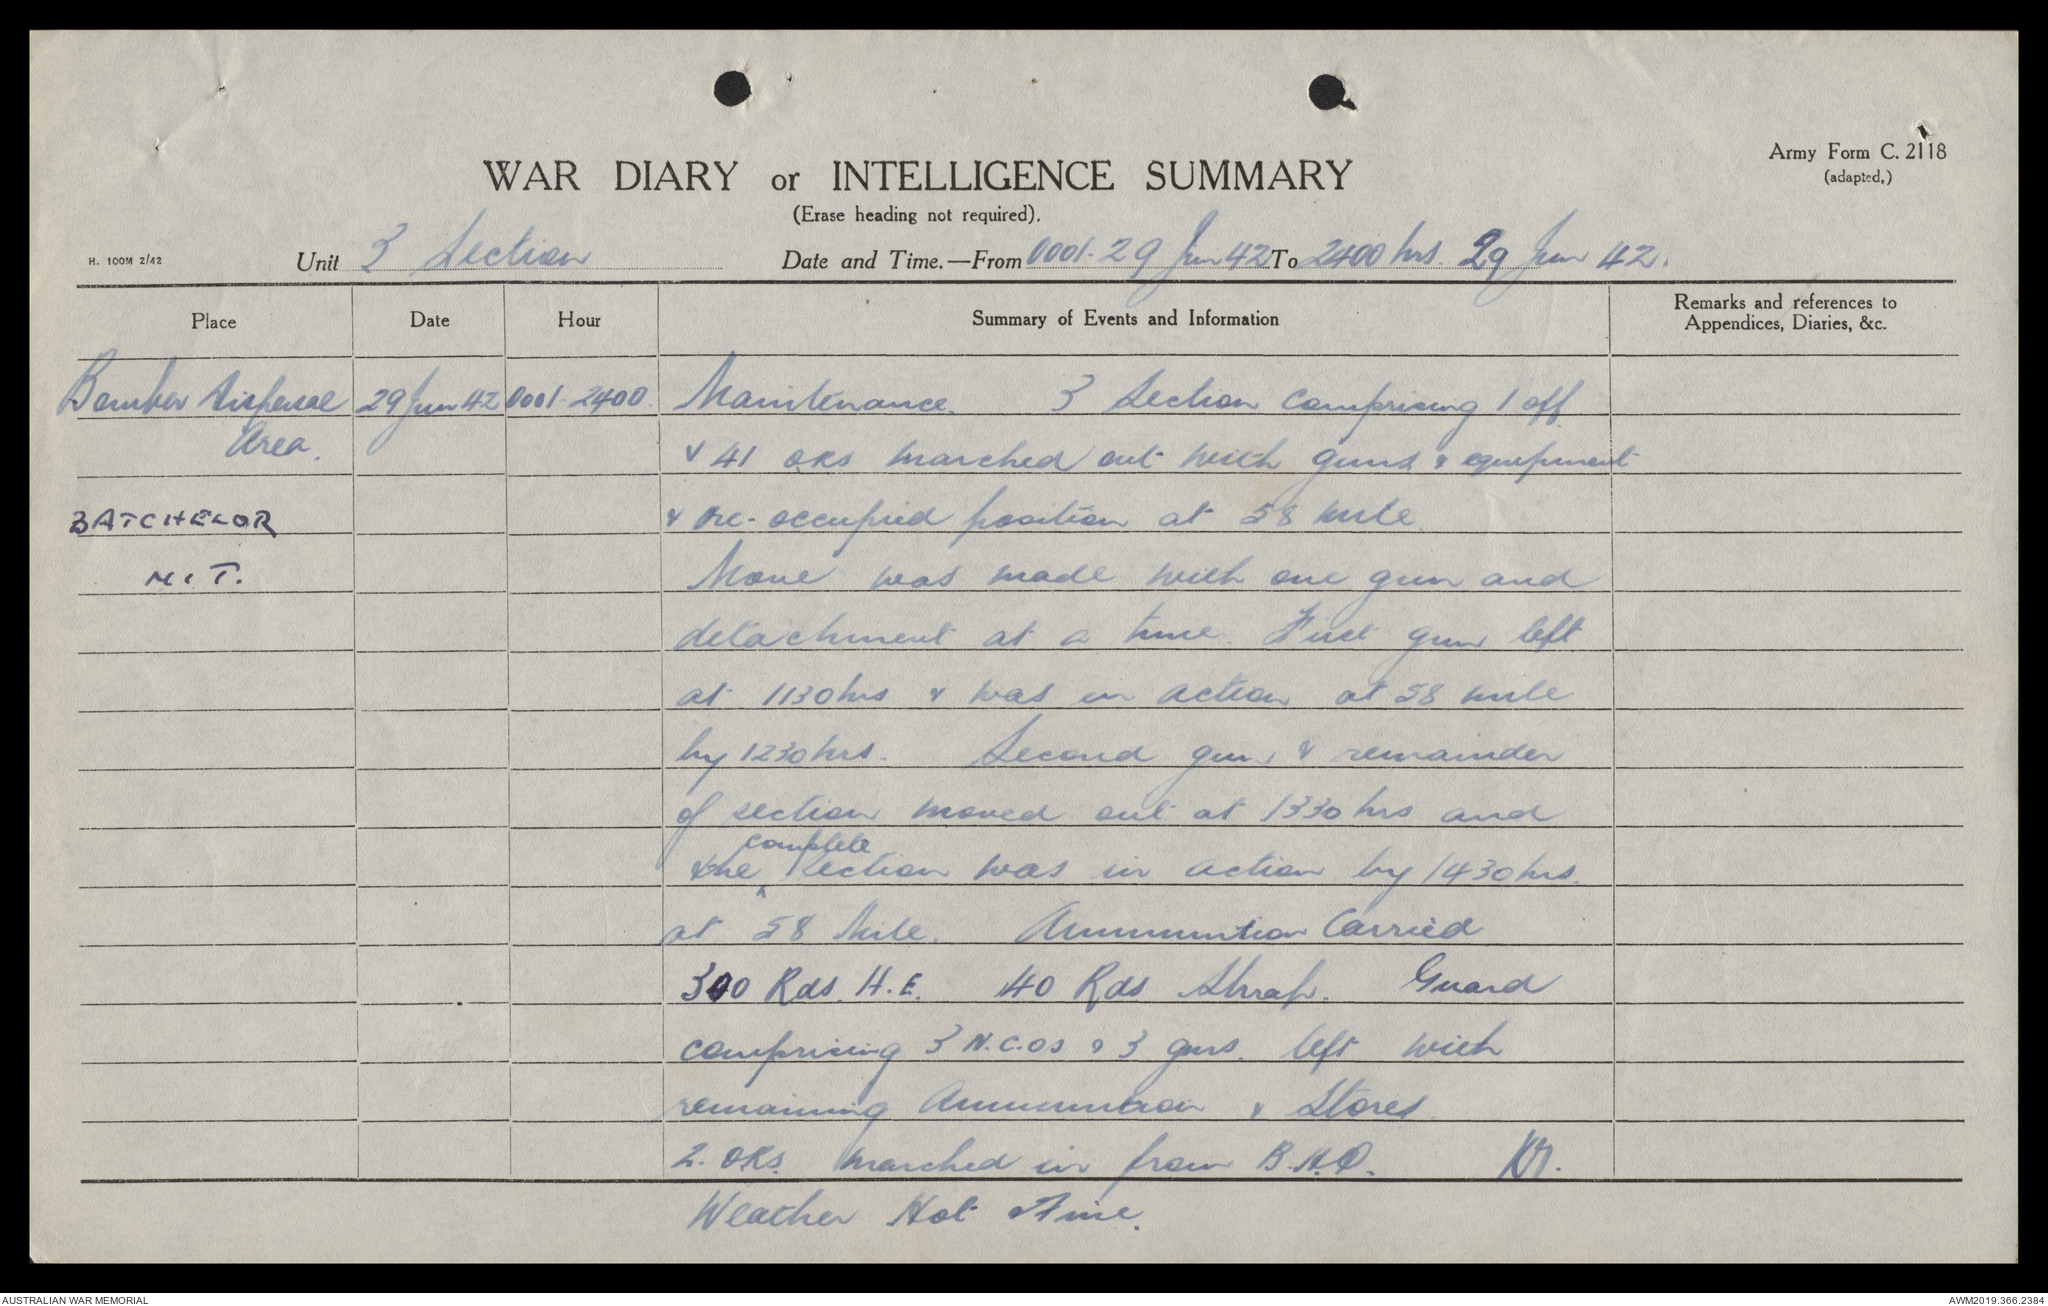 Army Form C. 2118
(adapted.)
WAR DIARY or INTELLIGENCE SUMMARY
(Erase heading not required).
H. 100M 2/42
Unit 3 Section Date and Time.—From 0001. 29 Jun 42 To 2400 hrs. 29 Jun 42.
Place Date Hour Summary of Events and Information Remarks and references to Appendices, Diaries, &c.
Bomber Dispersal 29 Jun 42 0001-2400. Maintenance. 3 Section comprising 1 off.
Area. & 41 ORs marched out with guns & equipment
BATCHELOR & re-occupied position at 58 mile.
N.T. Move was made with one gun and
detachment at a time. First gun left
at 1130 hrs & was in action at 58 mile
by 1230 hrs. Second gun & remainder
of section moved out at 1330 hrs and
the complete section was in action by 1430 hrs.
at 58 Mile. Ammunition Carried
Rds. H.E. 40 Rds Shrap. Guard
comprising 3 N.C.Os & 3 gnrs. left with
remaining Ammunition & Stores.
2. ORs. marched in from B.H.Q.
Weather Hot Fine.
AUSTRALIAN WAR MEMORIAL
AWM2019.366.2384